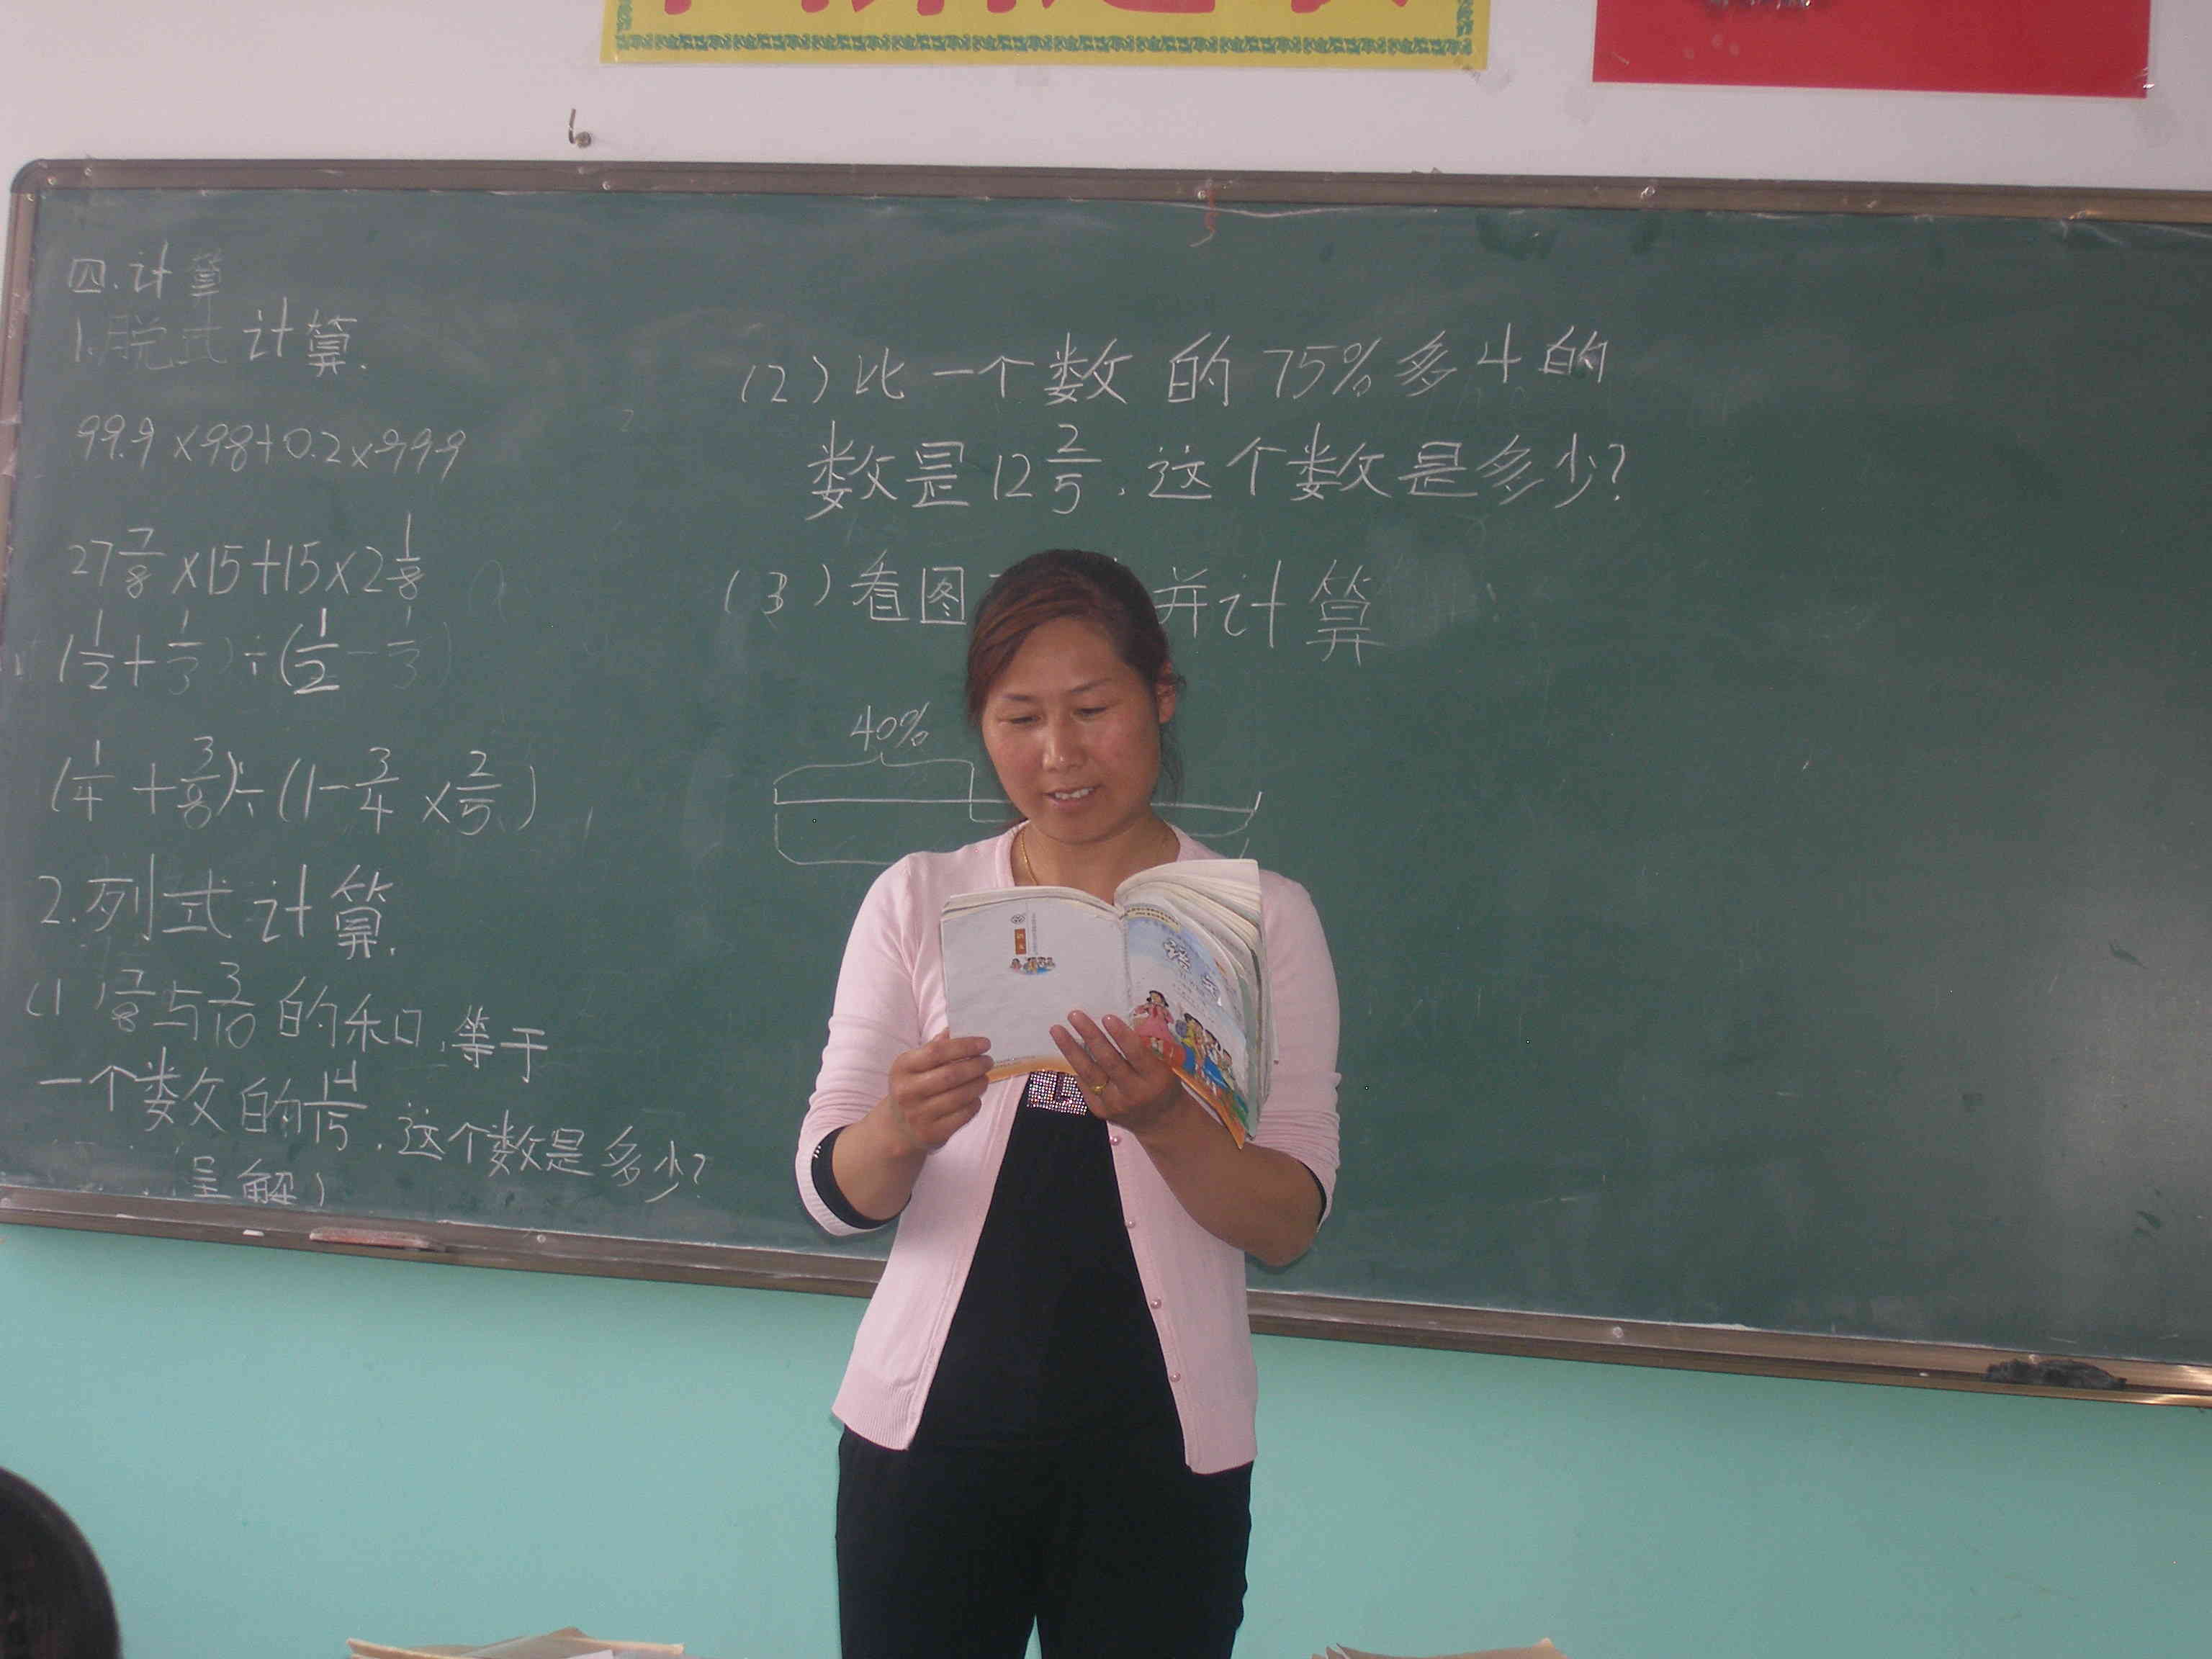 四.计算
1.脱式计算.
99.9×98+0.2×999
27 7/8 ×15+15×2 1/8
(1/2+1/3)÷(1/2-1/3)
(1/4+3/8)÷(1-3/4×2/5)
2.列式计算.
(1) 7/8与3/10的和,等于
一个数的14/15.这个数是多少?
解)
(2)比一个数的75%多4的
数是12 2/5.这个数是多少?
(3)看图 并计算
40%
语文